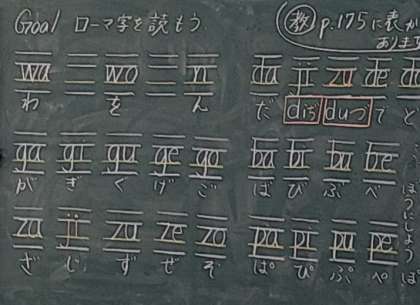 Goal ローマ字を読もう
教 p.175に表が
あります
wa wo n da ji zu de
わ を ん だ diぢ duづ で
ga gi gu ge go ba bi bu be
が ぎ ぐ げ ご ば び ぶ べ
za ji zu ze zo pa pi pu pe
ざ じ ず ぜ ぞ ぱ ぴ ぷ ぺ